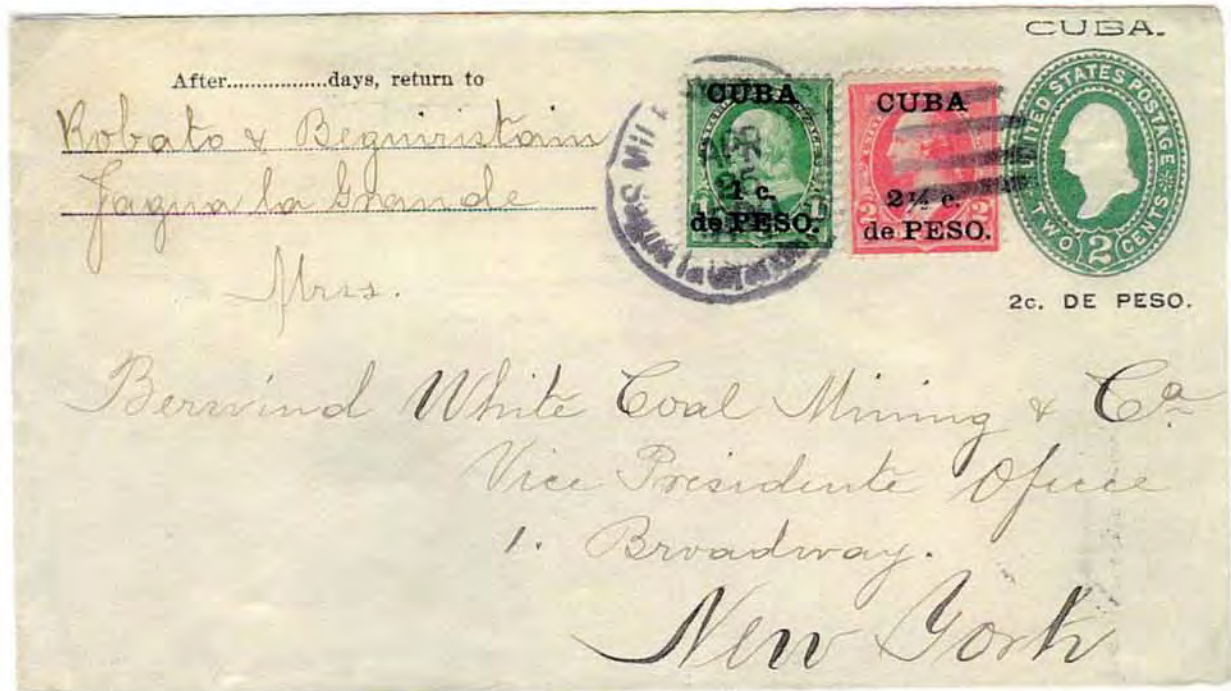 CUBA.
After................days, return to
Robato & Beguiristain
Sagua la Grande
CUBA
1 c.
de PESO.
CUBA
2½ c.
de PESO.
UNITED STATES POSTAGE
TWO 2 CENTS
2c. DE PESO.
Mrss.
Berwind White Coal Mining & Ca
Vice Presidente Ofice
1. Broadway.
New York